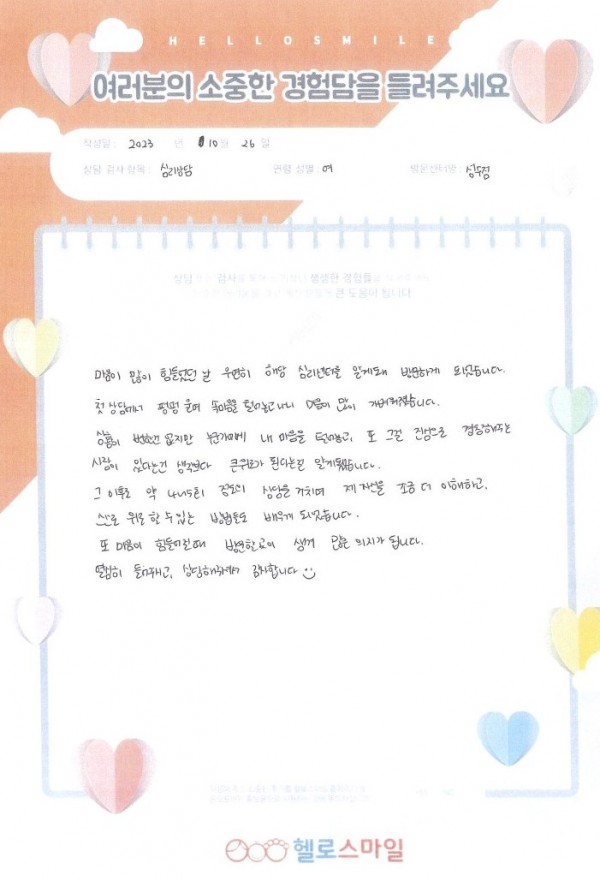 HELLOSMILE
여러분의 소중한 경험담을 들려주세요
작성일 : 2023 년 10월 26일
상담 검사 항목 : 심리상담 연령 성별 : 여 방문센터명 : 성수점
상담 검사 생생한 경험들
큰 도움이 됩니다
마음이 많이 힘들었던 날 우연히 해당 심리센터를 알게돼 방문하게 되었습니다.
첫 상담에서 펑펑 울며 속마음을 털어놓고나니 마음이 많이 가벼워졌습니다.
상황이 변한건 없지만 누군가에게 내 마음을 털어놓고, 또 그걸 진심으로 경청해주는
사람이 있다는건 생각보다 큰위로가 된다는걸 알게됐습니다.
그 이후로 약 4녀5회 정도의 상담을 거치며 제 자신을 조금 더 이해하고,
스스로 위로 할 수 있는 방법들도 배우게 되었습니다.
또 마음이 힘들어질때 방문할곳이 생겨 많은 의지가 됩니다.
열심히 들어주시고, 상담해주셔서 감사합니다
헬로스마일